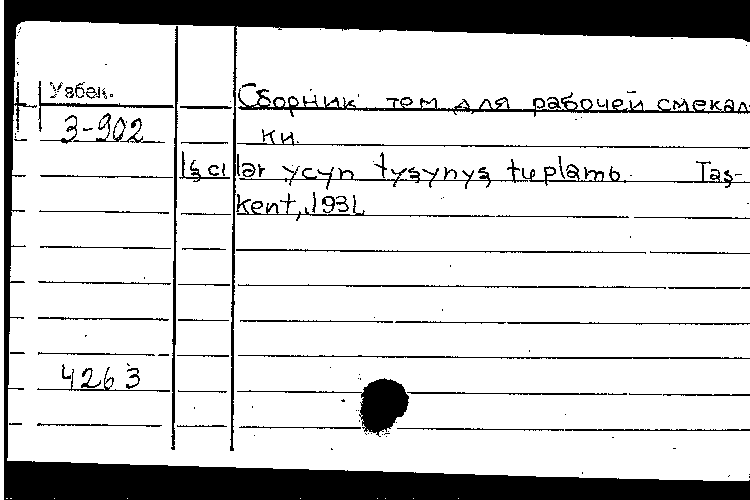 Узбек.
3-902
Сборник тем для рабочей смекал-
ки.
Işcilər ycyn tyşynyş tuplamь. Taş-
kent, 1931
4263